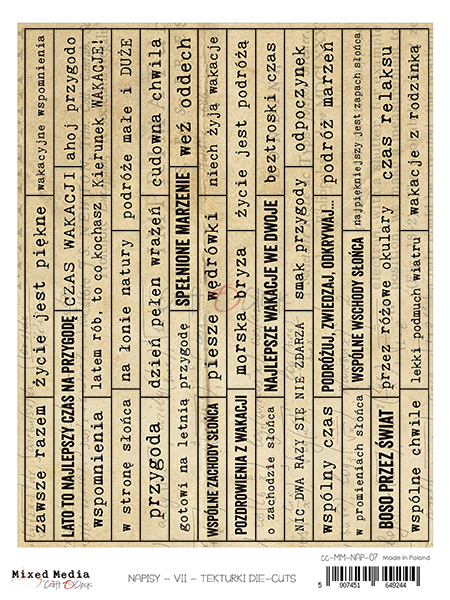 zawsze razem
życie jest piękne
wakacyjne wspomnienia
LATO TO NAJLEPSZY CZAS NA PRZYGODĘ
CZAS WAKACJI
ahoj przygodo
wspomnienia
latem rób, to co kochasz
Kierunek WAKACJE!
w stronę słońca
na łonie natury
podróże małe i DUŻE
przygoda
dzień pełen wrażeń
cudowna chwila
gotowi na letnią przygodę
SPEŁNIONE MARZENIE
weź oddech
WSPÓLNE ZACHODY SŁOŃCA
piesze wędrówki
niech żyją wakacje
POZDROWIENIA Z WAKACJI
morska bryza
życie jest podróżą
o zachodzie słońca
NAJLEPSZE WAKACJE WE DWOJE
beztroski czas
NIC DWA RAZY SIĘ NIE ZDARZA
smak przygody
odpoczynek
wspólny czas
PODRÓŻUJ, ZWIEDZAJ, ODKRYWAJ...
podróż marzeń
w promieniach słońca
WSPÓLNE WSCHODY SŁOŃCA
najpiękniejszy jest zapach słońca
BOSO PRZEZ ŚWIAT
przez różowe okulary
czas relaksu
wspólne chwile
lekki podmuch wiatru
wakacje z rodzinką
Mixed Media
Craft O'Clock
NAPISY - VII - TEKTURKI DIE-CUTS
CC-MM-NAP-07
Made in Poland
5 907451 649244